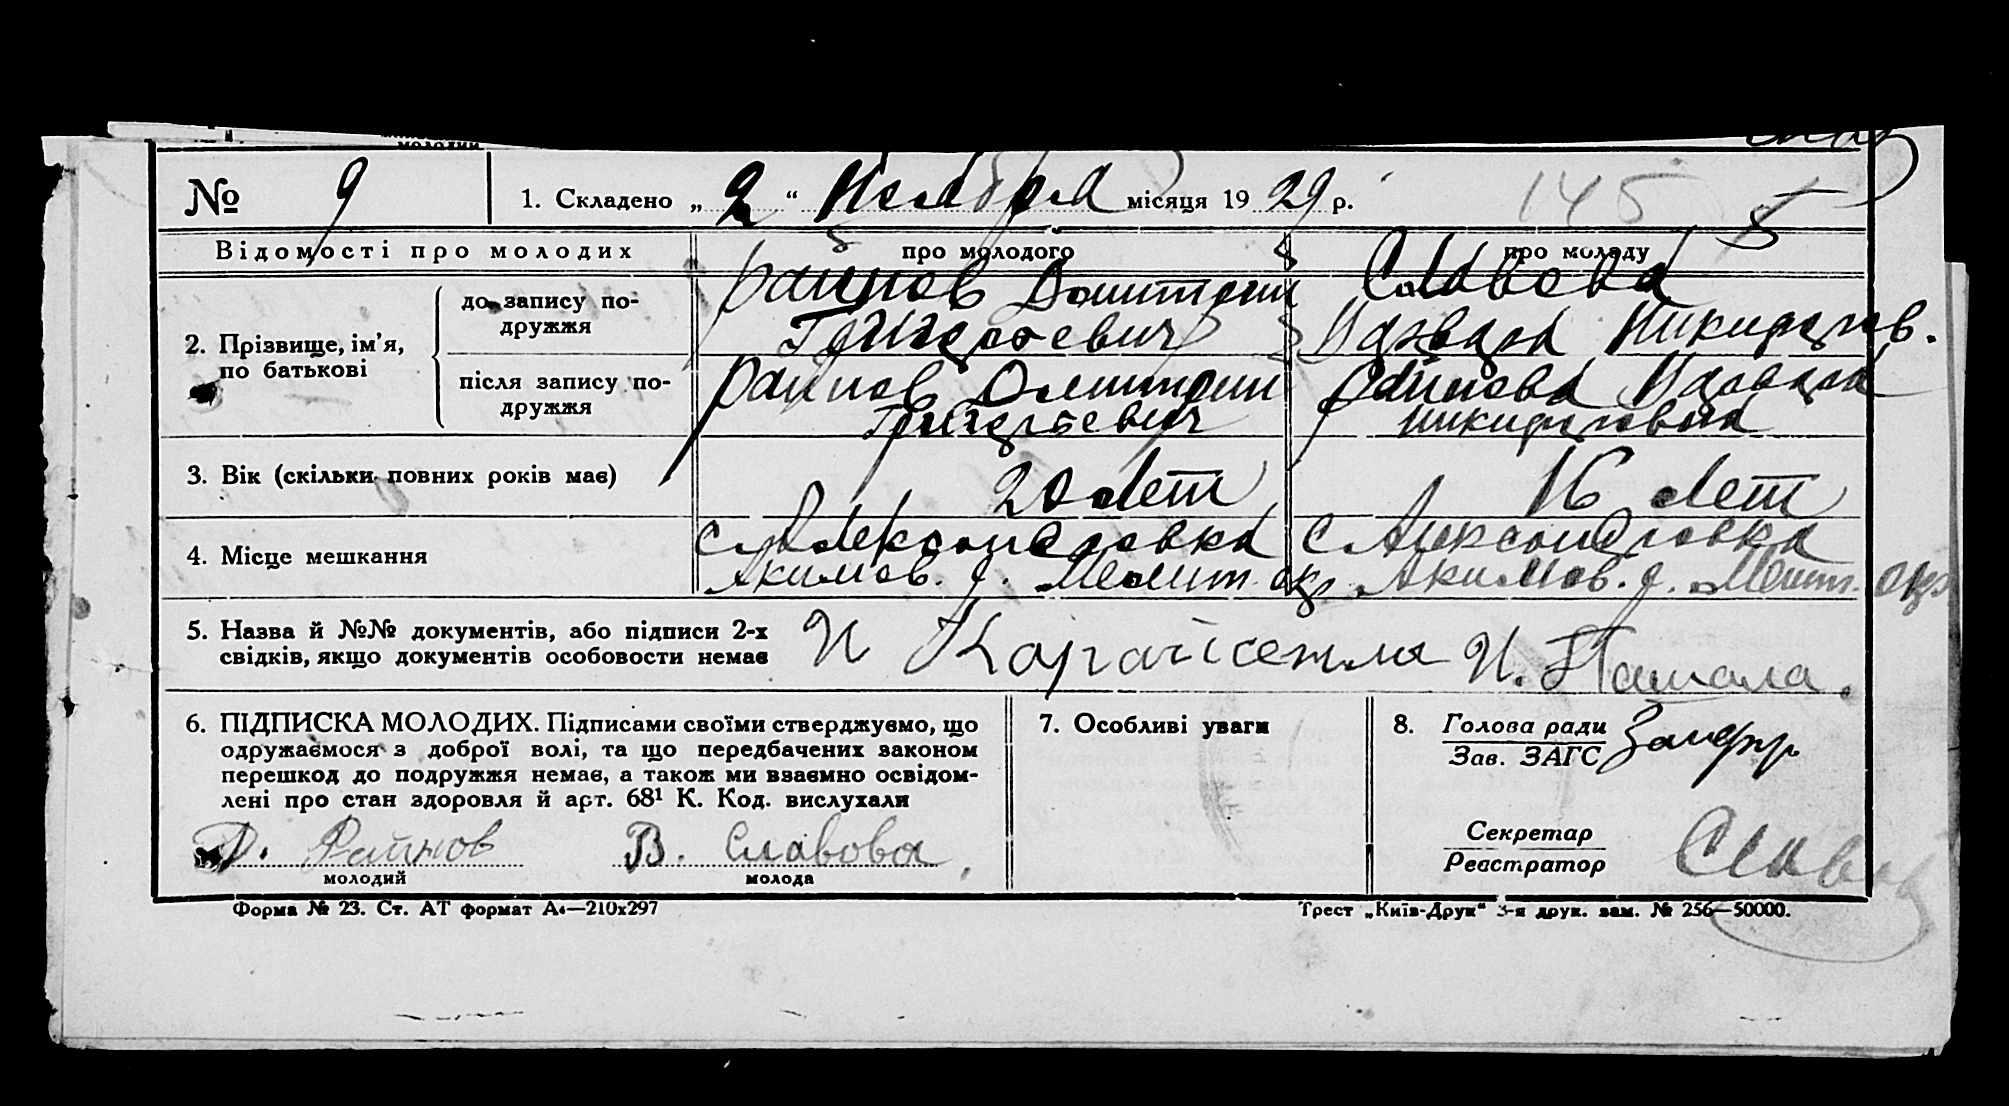 № 9
1. Складено „ 2 “ Ноября місяця 19 29 р.
145
Відомості про молодих
про молодого
про молоду
2. Прізвище, ім’я, по батькові
до запису подружжя
Райнов Дмитрий
Григорьевич
Славова
Варвара Никифоров.
після запису подружжя
Райнов Дмитрий
Григорьевич
Райнова Варвара
Никифоровна
3. Вік (скільки повних років має)
20 Лет
16 Лет
4. Місце мешкання
с Александровка
Акимов. р. Мелит. окр
с Александровка
Акимов. р. Мелит. окр
5. Назва й №№ документів, або підписи 2-х
свідків, якщо документів особовости немає
И Карайсенли И. Пашала.
6. ПІДПИСКА МОЛОДИХ. Підписами своїми стверджуємо, що
одружаємося з доброї волі, та що передбачених законом
перешкод до подружжя немає, а також ми взаємно освідом-
лені про стан здоровля й арт. 68¹ К. Код. вислухали
Д. Райнов
молодий
В. Славова
молода
7. Особливі уваги
8. Голова ради
Зав. ЗАГС
Секретар
Реєстратор
Славов
Форма № 23. Ст. АТ формат А₄—210x297
Трест „Київ-Друк“ 3-я друк. зам. № 256—50000.